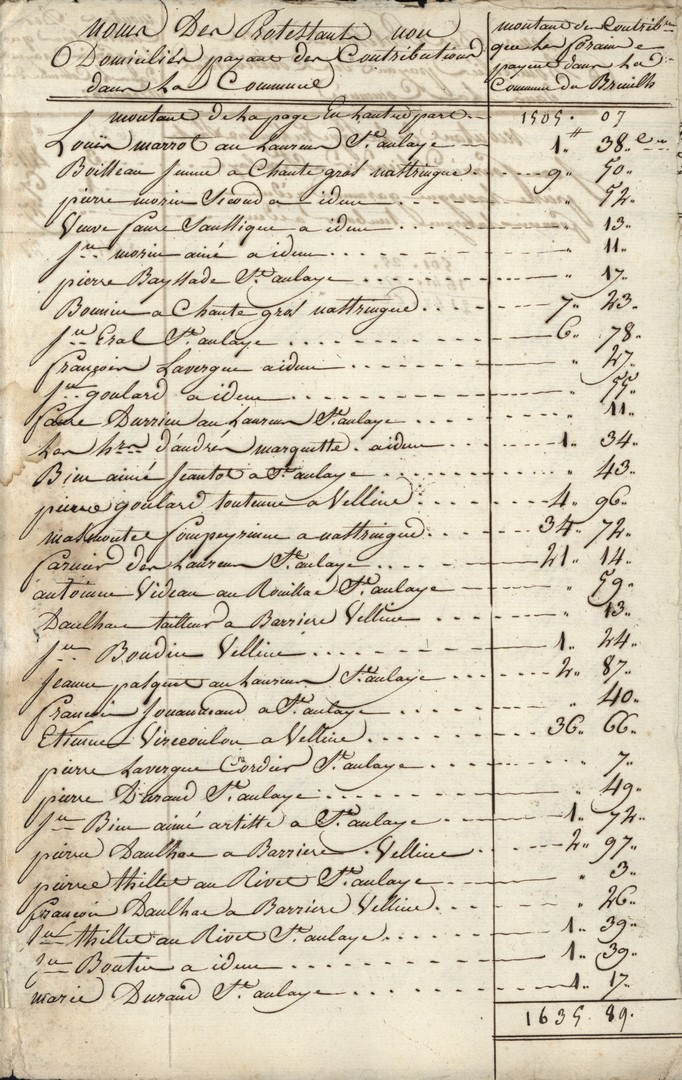 noms Des Protestants non
Domiciliés payant des Contributions
dans La Commune
montant des Contrib.ns
que les forains
payent dans La
Commune du Breuilh
montant de la page En L'autre part. 1505. 07
Louis marrot au Laureur St. aulaye 1.tt 38.
Boitteau Jeune a Chante gros nattringue 9. 50.
pierre morin Second a idem " 52.
Veuve faure a idem " 13.
Jn morin ainé a idem " 11.
pierre Bayssade St. aulaye " 17.
Bonnin a Chante gros nattringue 7. 23.
Jn Eral St. aulaye 6. 78.
françois Lavergne a idem " 27.
Jn goulard a idem " 55.
faure Durrieu au Laureur St. aulaye " 11.
Les h.rs d'andré marquette. a idem 1. 34.
Bien aimé Jeantot a St. aulaye " 43.
pierre goulard a Velline 4. 96.
Compeyrinne a nattringue 34. 72.
Garnier des Laureur St. aulaye 21. 14.
antoinne Videau au Rouillac St. aulaye " 59.
Daulhac tailleur a Barriere Velline " 13.
Jn Boudin Velline 1. 24.
Jeanne pasquet au Laureur St. aulaye 2. 87.
françois a St. aulaye " 40.
Etienne Vircoulon a Velline 36. 66.
pierre Lavergne Cordier St. aulaye " 7.
pierre Durand St. aulaye " 49.
Jn Bien aimé artiste a St. aulaye 1. 72.
pierre Daulhac a Barriere. Velline 2. 97.
pierre thillet au Rivet St. aulaye " 3.
françois Daulhac a Barriere Velline " 26.
Jn thillet au Rivet St. aulaye 1. 39.
Jn Boutin a idem 1. 39.
marie Durand St. aulaye 1. 17.
1635. 89.